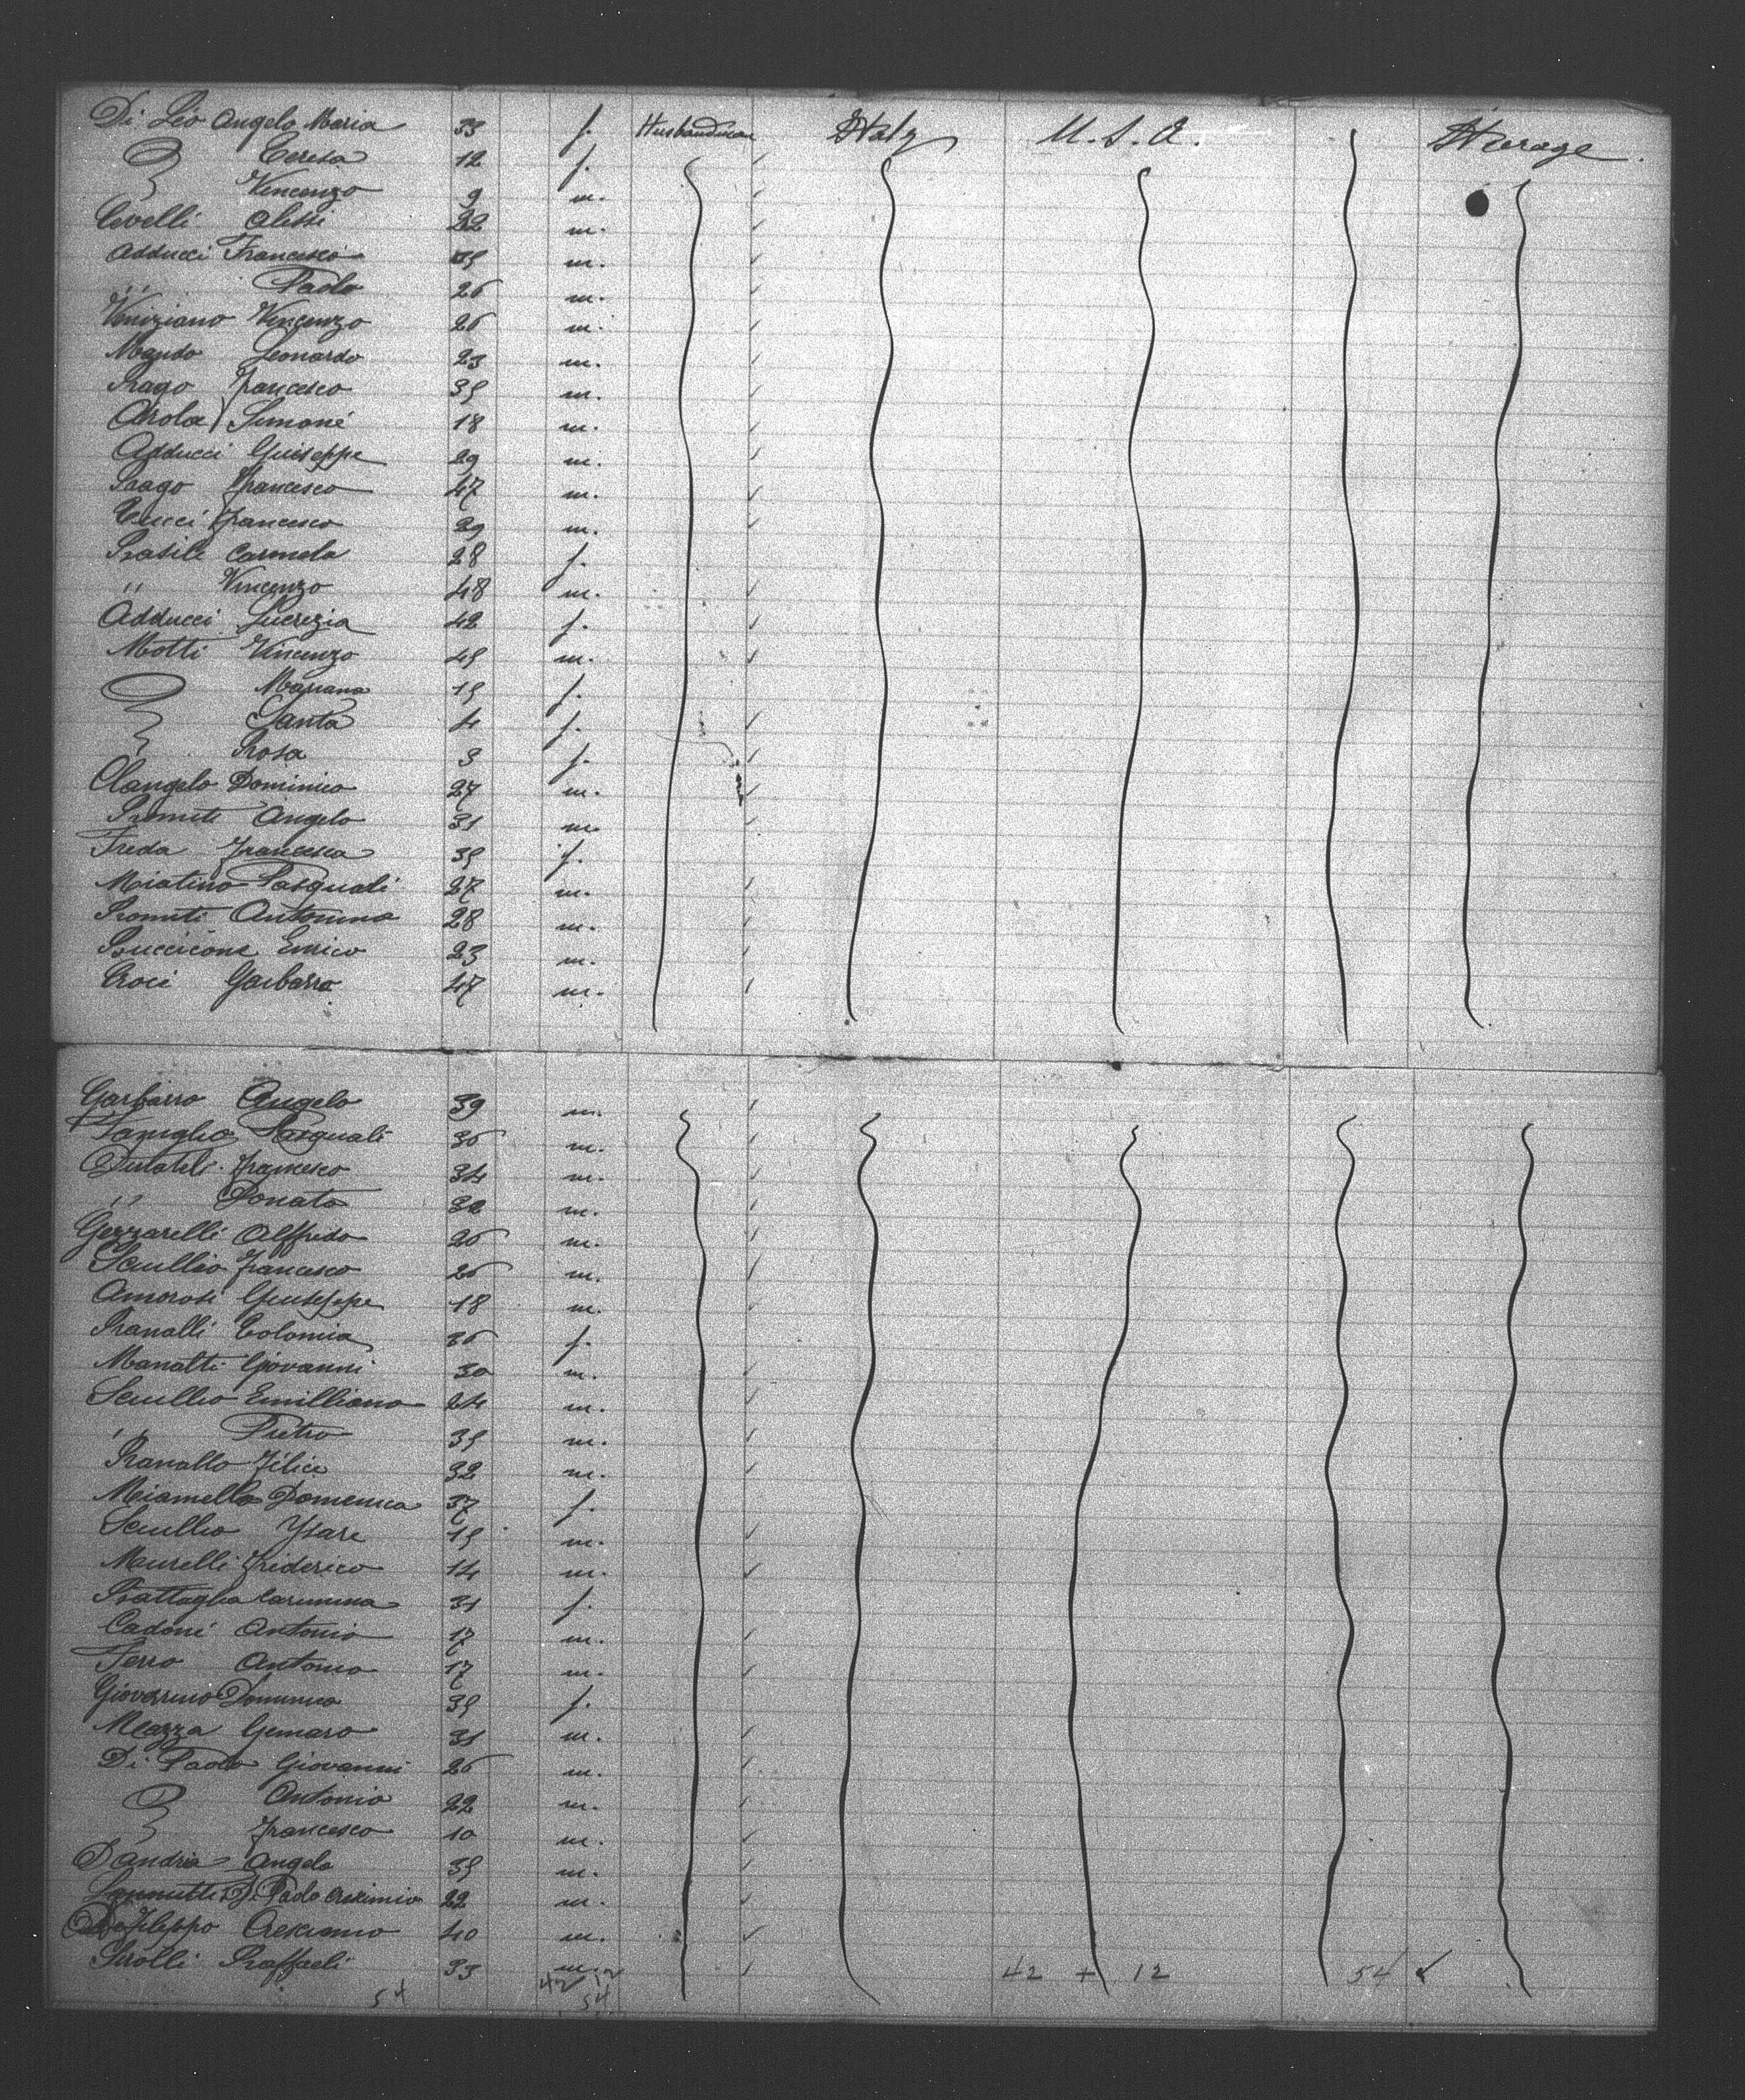 Di Leo Angelo Maria 33 f. Husbandman Italy U.S.A. Steerage.
Teresa 12 f.
Vincenzo 9 m.
Covelli Alessi 22 m.
Adducci Francesco m.
,, Paolo 26 m.
Veniziano Vincenzo 26 m.
Leonardo 23 m.
Prago Francesco 35 m.
Simone 18 m.
Adducci Guiseppe 29 m.
Prago Francesco 47 m.
Tucci Francesco 29 m.
Basile Carmela 28 f.
,, Vincenzo 48 m.
Adducci Lucrezia 42 f.
Motti Vincenzo 45 m.
Mariana 15 f.
Santa 4 f.
Rosa 3 f.
Clangelo Dominico 27 m.
Promiti Angelo 31 m.
Freda Francesca 35 f.
Miatino Pasquali 27 m.
Promiti Antonino 28 m.
Buccicone Enrico 23 m.
Croci Garbarro 47 m.
Garbarro Angelo 39 m.
Pasquali 36 m.
Francesco 34 m.
,, Donato 32 m.
Gezzarelli Alffredo 26 m.
Scullio Francesco 26 m.
Amorosi Guiseppe 18 m.
Ranalli Colomia 36 f.
Manatti Giovanni 30 m.
Scullio Emilliano 24 m.
,, Pietro 35 m.
Ranallo Filice 32 m.
Miamella Domenica 37 f.
Scullio Ysare 15 m.
Maurelli Friderico 14 m.
Battaglia Carmina 31 f.
Cadoni Antonio 17 m.
Ferro Antonio 17 m.
Giovarrino Dominica 35 f.
Meazza Gennaro 31 m.
Di Paolo Giovanni 26 m.
Antonio 22 m.
Francesco 10 m.
Dandria Angelo 35 m.
Di Paolo 22 m.
De Filippo Crescimio 40 m.
Sirolli Raffaeli 33 m.
54 42 12 54 42 + 12 54